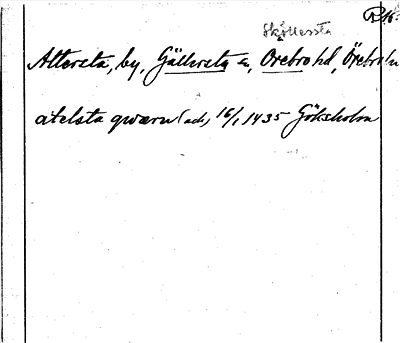 RK.
Sköllersta
Attersta, by, Gällersta sn, Örebro hd, Örebro län
atelsta qwærn (ack) 16/1 1435 Göksholm